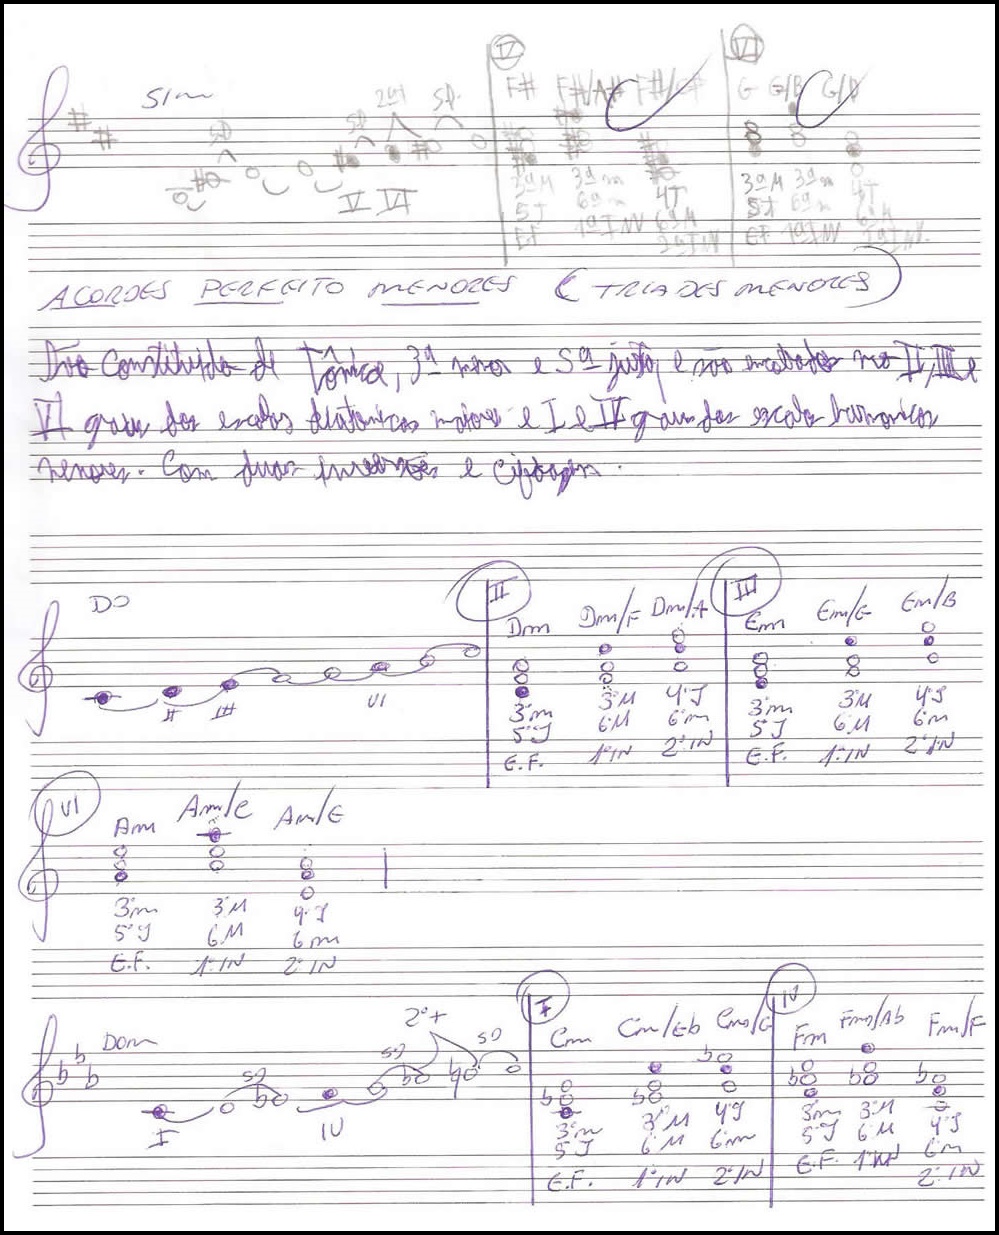 V VI
SIm 5J 5J 2ª+ 5J F# F#/A# F#/C# G G/B G/D
V VI
3ªM 3ªm 4J 3ªM 3ªm 4J
5J 6ªm 6ªM 5J 6ªm 6ªM
EF 1ªINV 2ªINV EF 1ªINV 2ªINV.
ACORDES PERFEITO MENORES (TRIADES MENORES)
São Constituída de Tônica, 3ª menor e 5ª justa, e são encontrados no II, III e
VI graus das escalas diatônicas maiores e I e IV graus das escala harmonicas
menores. Com duas inversões e cifragem.
II III
DO Dm Dm/F Dm/A Em Em/G Em/B
II III VI
3ªm 3ªM 4ªJ 3ªm 3ªM 4ªJ
5ªJ 6ªM 6ªm 5ªJ 6ªM 6ªm
E.F. 1ªIN 2ªIN E.F. 1ªIN 2ªIN
VI
Am Am/C Am/E
3ªm 3ªM 4ªJ
5ªJ 6ªM 6ªm
E.F. 1ªIN 2ªIN
I IV
Dom 5J 5J 2ª+ 5J Cm Cm/Eb Cm/G Fm Fm/Ab Fm/F
I IV
3ªm 3ªM 4ªJ 3ªm 3ªM 4ªJ
5ªJ 6ªM 6ªm 5ªJ 6ªM 6ªm
E.F. 1ªIN 2ªIN E.F. 1ªIN 2ªIN